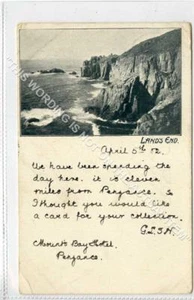 LAND'S END.
April 5th 02.
We have been spending the
day here. it is eleven
miles from Penzance. So
I thought you would like
a card for your collection.
Mounts Bay Hotel,
Penzance.